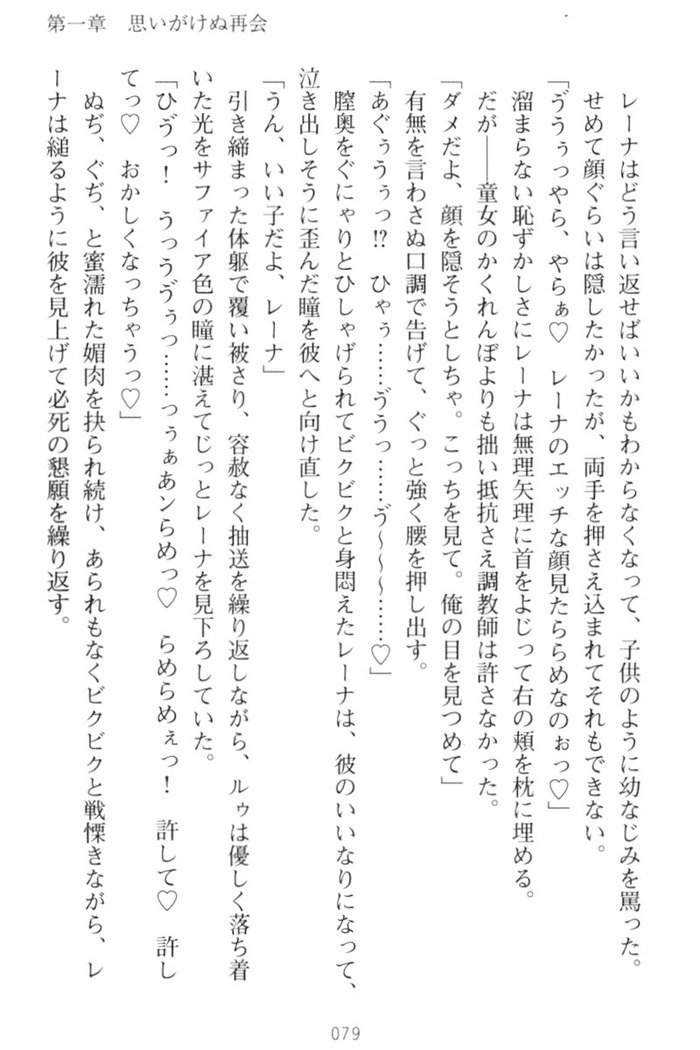 第一章　思いがけぬ再会
レーナはどう言い返せばいいかもわからなくなって、子供のように幼なじみを罵った。
せめて顔ぐらいは隠したかったが、両手を押さえ込まれてそれもできない。
「ゔうぅっやら、やらぁ♡　レーナのエッチな顔見たららめなのぉっ♡」
溜まらない恥ずかしさにレーナは無理矢理に首をよじって右の頬を枕に埋める。
だが――童女のかくれんぼよりも拙い抵抗さえ調教師は許さなかった。
「ダメだよ、顔を隠そうとしちゃ。こっちを見て。俺の目を見つめて」
有無を言わさぬ口調で告げて、ぐっと強く腰を押し出す。
「あぐぅうぅっ!?　ひゃぅ……ゔうっ……ゔ～～～……♡」
膣奥をぐにゃりとひしゃげられてビクビクと身悶えたレーナは、彼のいいなりになって、
泣き出しそうに歪んだ瞳を彼へと向け直した。
「うん、いい子だよ、レーナ」
引き締まった体躯で覆い被さり、容赦なく抽送を繰り返しながら、ルゥは優しく落ち着
いた光をサファイア色の瞳に湛えてじっとレーナを見下ろしていた。
「ひゔっ！　うっうゔぅっ……っぅぁあンらめっ♡　らめらめぇっ！　許して♡　許し
てっ♡　おかしくなっちゃうっ♡」
ぬぢ、ぐぢ、と蜜濡れた媚肉を抉られ続け、あられもなくビクビクと戦慄きながら、レ
ーナは縋るように彼を見上げて必死の懇願を繰り返す。
079